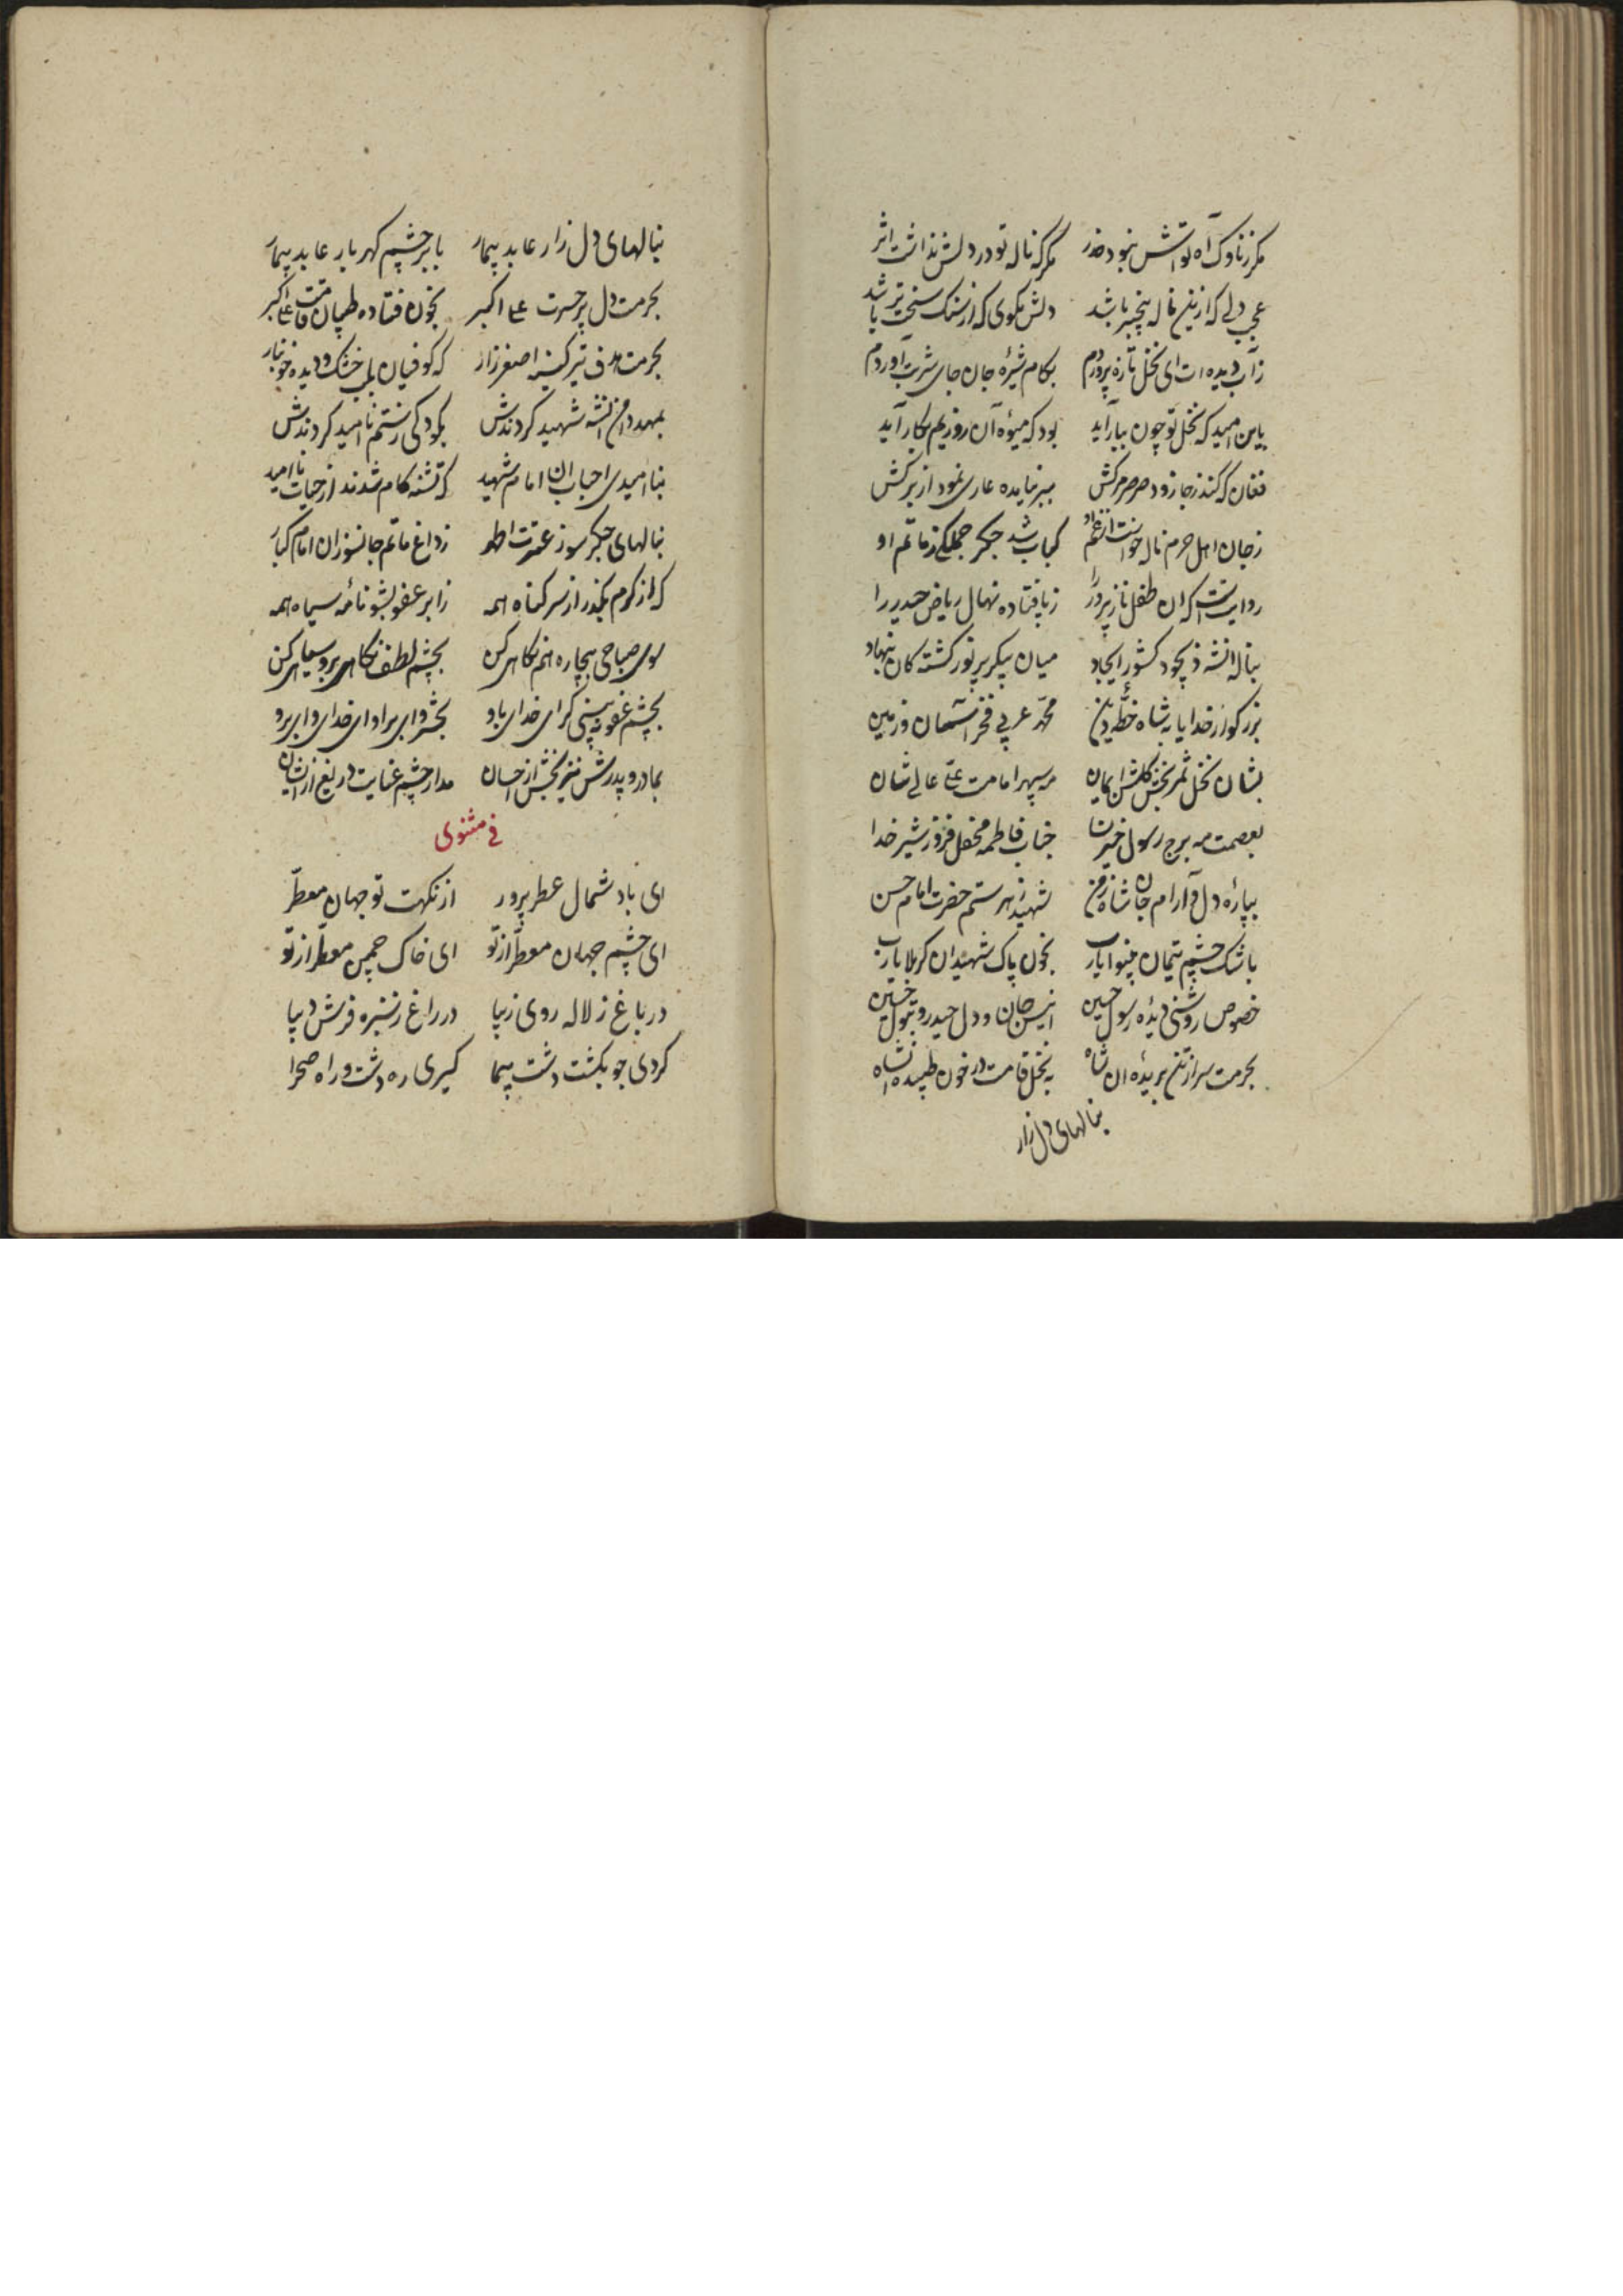 مکر زناوک آه تو اتش نبود حذر مکر که ناله تو در دلش نداشت اثر
عجب دلی که ازین ناله بیخبر باشد دلش مکوی که از سنک سخت تر باشد
زآب دیده ات ای نخل تازه پروردم بکام شیره جان جای شربت آوردم
باین امید که نخل تو چون ببار آید بود که میوه آن روزیم بکار آید
فغان که کند زجا زود صرصر مرکش ببر نیامده عاری نمود از برکش
زجان اهل حرم ناله خواست از غم او کباب شد جکر جملکی زماتم او
روایت است که ان طفل نازپرور را زپا فتاده نهال ریاض حیدر را
بناله انشه ذیجود کشور ایجاد میان پیکر پر نور کشته کان بنهاد
بزرکوار خدایا به شاه خطّهٔ دین محمّد عربی فخر آسمان و زمین
بشان نخل ثمر بخش کلشن ایمان مه سپهر امامت علی عالی شان
بعصمت مه برج رسول خیر نسا جناب فاطمه محفل فروز شیر خدا
بپاره دل و آرام جان شاه زمن شهید زهر ستم حضرت امام حسن
باشک چشم یتیمان بینوا یارب بخون پاک شهیدان کربلا یارب
خصوص روشنی دیده رسول حسین انیس جان و دل حیدر و بتول حسین
بحرمت سر از تن بریده ان شاه به نخل قامت در خون طپیده انشاه
بنالهای دل زار
بنالهای دل زار عابد بیمار بابر چشم کهربار عابد بیمار
بحرمت دل پر حسرت علی اکبر بخون فتاده طپان قامت علی اکبر
بحرمت هدف تیر کینه اصغر زار که کوفیان بلب خشک و دیده خونبار
بمهد دامن انشه شهید کردندش بکودکی زستم ناامید کردندش
بناامیدی احباب ان امام شهید که تشنه کام شدند از حیات ناامید
بنالهای جکر سوز عترت اطهار زداغ ماتم جانسوز ان امام کبار
که از کرم بکذر از سر کناه همه زابر عفو بشو نامه سیاه همه
سوی صباحی بیچاره هم نکاهی کن بچشم لطف نکاهی بروسیاهی کن
بچشم عفو نبینی کر ای خدای باو بحشر وای براو ای خدای وای برو
بمادر و پدرش نیز بخش از احسان مدار چشم عنایت دریغ از ایشان
فی مثنوی
ای باد شمال عطرپرور از نکهت تو جهان معطّر
ای چشم جهان معطّر از تو ای خاک چمن معطّر از تو
در باغ ز لاله روی زیبا در راغ ز سبزه فرش دیبا
کردی چو بکشت دشت پیما کیری ره دشت و راه صحرا